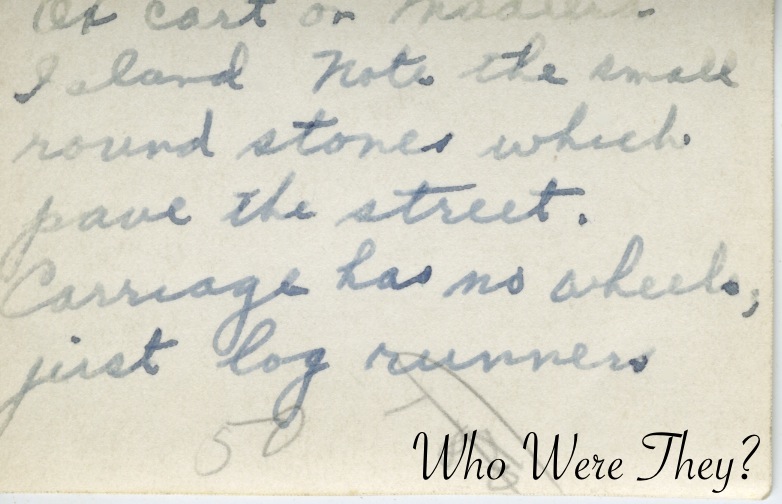 Ox cart on Madeira
Island Note the small
round stones which
pave the street.
Carriage has no wheels,
just log runners
50
Who Were They?